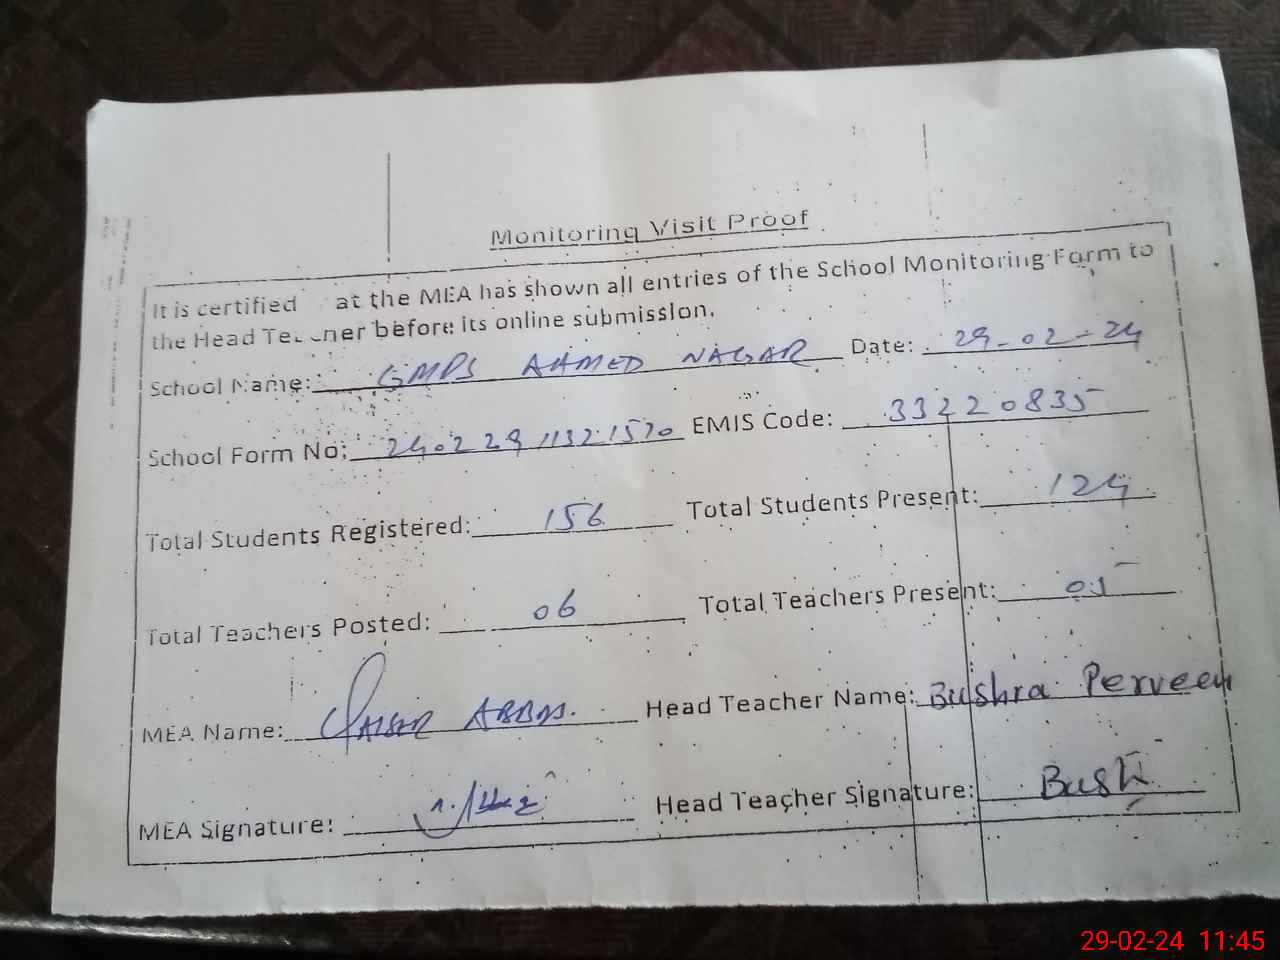 Monitoring Visit Proof
It is certified at the MEA has shown all entries of the School Monitoring Form to
the Head Teacher before its online submission.
School Name: GMPS AHMED NAGAR Date: 29-02-24
School Form No: 24022911321570 EMIS Code: 33220835
Total Students Registered: 156 Total Students Present: 124
Total Teachers Posted: 06 Total Teachers Present: 05
MEA Name: QAISER ABBAS. Head Teacher Name: Bushra Perveen
MEA Signature: Head Teacher Signature: Bush
29-02-24 11:45